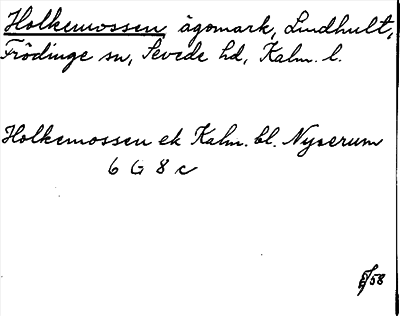 Holkemossen ägomark, Lindhult,
Frödinge sn, Sevede hd, Kalm. l.
Holkemossen ek Kalm. bl. Nyserum
6 G 8 c
58